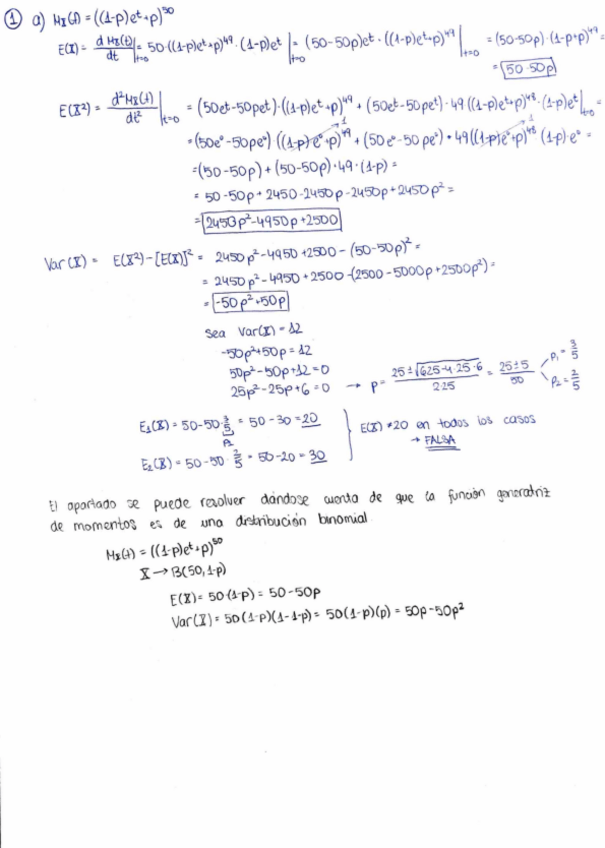 ① a) M_X(t) = ((1-p)e^t+p)^50
E(X) = d M_X(t)/dt |_{t=0} = 50·((1-p)e^t+p)^49·(1-p)e^t |_{t=0} = (50-50p)e^t·((1-p)e^t+p)^49 |_{t=0} = (50-50p)·(1-p+p)^49 =
= 50-50p
E(X^2) = d^2M_X(t)/dt^2 |_{t=0} = (50e^t-50pe^t)·((1-p)e^t+p)^49 + (50e^t-50pe^t)·49((1-p)e^t+p)^48·(1-p)e^t |_{t=0} =
= (50e^0-50pe^0)((1-p)e^0+p)^49 + (50e^0-50pe^0)·49((1-p)e^0+p)^48 (1-p)·e^0 =
= (50-50p) + (50-50p)·49·(1-p) =
= 50-50p+2450-2450p-2450p+2450p^2 =
= 2450p^2-4950p+2500
Var(X) = E(X^2)-[E(X)]^2 = 2450p^2-4950+2500-(50-50p)^2 =
= 2450p^2-4950+2500-(2500-5000p+2500p^2) =
= -50p^2+50p
Sea Var(X) = 12
-50p^2+50p = 12
50p^2-50p+12 = 0
25p^2-25p+6 = 0 → p = 25±√(625-4·25·6)/2·25 = 25±5/50 p_1 = 3/5 p_2 = 2/5
E_1(X) = 50-50·3/5 = 50-30 = 20
p_1
E_2(X) = 50-50·2/5 = 50-20 = 30
E(X) ≠ 20 en todos los casos
→ FALSA
El apartado se puede resolver dándose cuenta de que la función generatriz
de momentos es de una distribución binomial
M_X(t) = ((1-p)e^t+p)^50
X → B(50, 1-p)
E(X) = 50·(1-p) = 50-50p
Var(X) = 50(1-p)(1-1-p) = 50(1-p)(p) = 50p-50p^2